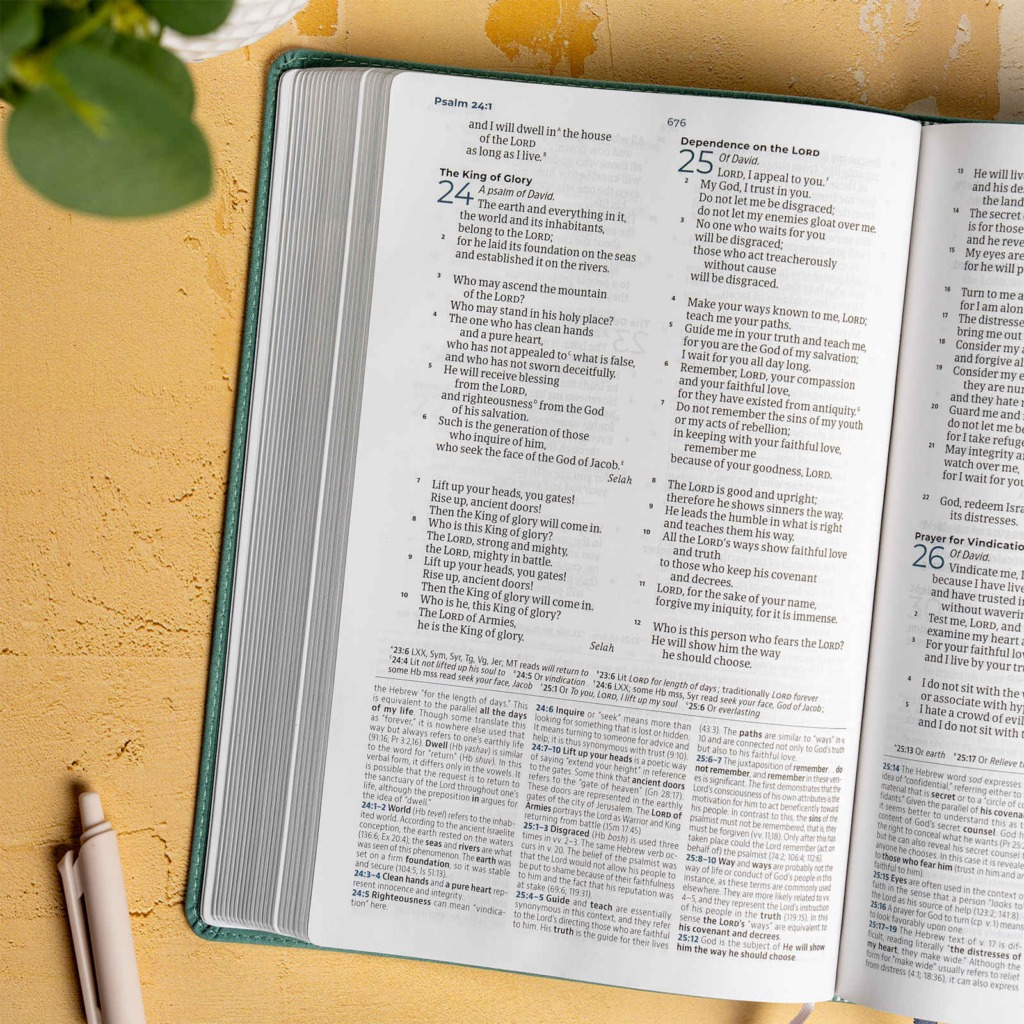 Psalm 24:1
676
and I will dwell in^A the house
of the LORD
as long as I live.^B
The King of Glory
24 A psalm of David.
The earth and everything in it,
the world and its inhabitants,
belong to the LORD;
2 for he laid its foundation on the seas
and established it on the rivers.
3 Who may ascend the mountain
of the LORD?
Who may stand in his holy place?
4 The one who has clean hands
and a pure heart,
who has not appealed to^C what is false,
and who has not sworn deceitfully.
5 He will receive blessing
from the LORD,
and righteousness^D from the God
of his salvation.
6 Such is the generation of those
who inquire of him,
who seek the face of the God of Jacob.^E
Selah
7 Lift up your heads, you gates!
Rise up, ancient doors!
Then the King of glory will come in.
8 Who is this King of glory?
The LORD, strong and mighty,
the LORD, mighty in battle.
9 Lift up your heads, you gates!
Rise up, ancient doors!
Then the King of glory will come in.
10 Who is he, this King of glory?
The LORD of Armies,
he is the King of glory.
Selah
Dependence on the LORD
25 Of David.
LORD, I appeal to you.^F
2 My God, I trust in you.
Do not let me be disgraced;
do not let my enemies gloat over me.
3 No one who waits for you
will be disgraced;
those who act treacherously
without cause
will be disgraced.
4 Make your ways known to me, LORD;
teach me your paths.
5 Guide me in your truth and teach me,
for you are the God of my salvation;
I wait for you all day long.
6 Remember, LORD, your compassion
and your faithful love,
for they have existed from antiquity.^G
7 Do not remember the sins of my youth
or my acts of rebellion;
in keeping with your faithful love,
remember me
because of your goodness, LORD.
8 The LORD is good and upright;
therefore he shows sinners the way.
9 He leads the humble in what is right
and teaches them his way.
10 All the LORD's ways show faithful love
and truth
to those who keep his covenant
and decrees.
11 LORD, for the sake of your name,
forgive my iniquity, for it is immense.
12 Who is this person who fears the LORD?
He will show him the way
he should choose.
^A23:6 LXX, Sym, Syr, Tg, Vg, Jer; MT reads will return to ^B23:6 Lit LORD for length of days; traditionally LORD forever
^C24:4 Lit not lifted up his soul to ^D24:5 Or vindication ^E24:6 LXX; some Hb mss, Syr read seek your face, God of Jacob;
some Hb mss read seek your face, Jacob ^F25:1 Or To you, LORD, I lift up my soul ^G25:6 Or everlasting
the Hebrew "for the length of days." This
is equivalent to the parallel all the days
of my life. Though some translate this
as "forever," it is nowhere else used that
way but always refers to one's earthly life
(91:16; Pr 3:2,16). Dwell (Hb yashav) is similar
to the word for "return" (Hb shuv). In this
verbal form, it differs only in the vowels. It
is possible that the request is to return to
the sanctuary of the Lord throughout one's
life, although the preposition in argues for
the idea of "dwell."
24:1-2 World (Hb tevel) refers to the inhab-
ited world. According to the ancient Israelite
conception, the earth rested on the waters
(136:6; Ex 20:4); the seas and rivers are what
was seen of this phenomenon. The earth was
set on a firm foundation, so it was stable
and secure (104:5; Is 51:13).
24:3-4 Clean hands and a pure heart rep-
resent innocence and integrity.
24:5 Righteousness can mean "vindica-
tion" here.
24:6 Inquire or "seek" means more than
looking for something that is lost or hidden.
It means turning to someone for advice and
help; it is thus synonymous with trust (9:10).
24:7-10 Lift up your heads is a poetic way
of saying "extend your height" in reference
to the gates. Some think that ancient doors
refers to the "gate of heaven" (Gn 28:17).
These doors are represented in the earthly
gates of the city of Jerusalem. The LORD of
Armies portrays the Lord as Warrior and King
returning from battle (1Sm 17:45).
25:1-3 Disgraced (Hb bosh) is used three
times in vv. 2–3. The same Hebrew verb oc-
curs in v. 20. The belief of the psalmist was
that the Lord would not allow his people to
be put to shame because of their faithfulness
to him and the fact that his reputation was
at stake (69:6; 119:31).
25:4-5 Guide and teach are essentially
synonymous in this context, and they refer
to the Lord's directing those who are faithful
to him. His truth is the guide for their lives
(43:3). The paths are similar to "ways" in v.
10 and are connected not only to God's truth
but also to his faithful love.
25:6-7 The juxtaposition of remember...do
not remember, and remember in these vers-
es is significant. The first demonstrates that the
Lord's consciousness of his own attributes is the
motivation for him to act beneficently toward
his people. In contrast to this, the sins of the
psalmist must not be remembered, that is, they
must be forgiven (vv. 11,18). Only after this has
taken place could the Lord remember (act on
behalf of) the psalmist (74:2; 106:4; 112:6).
25:8-10 Way and ways are probably not the
way of life or conduct of God's people in this
instance, as these terms are commonly used
elsewhere. They are more likely related to vv.
4–5, and they represent the Lord's instruction
of his people in the truth (119:15). In this
sense the LORD's "ways" are equivalent to
his covenant and decrees.
25:12 God is the subject of He will show
him the way he should choose.
13 He will liv
and his de
the land
14 The secret
is for those
and he revea
15 My eyes are
for he will p
16 Turn to me a
for I am alon
17 The distresse
bring me out
18 Consider my
and forgive al
19 Consider my e
they are nu
and they hate
20 Guard me and
do not let me be
for I take refuge
21 May integrity an
watch over me,
for I wait for you
22 God, redeem Isra
its distresses.
Prayer for Vindicatio
26 Of David.
Vindicate me, L
because I have live
and have trusted i
without waverin
2 Test me, LORD, and
examine my heart
3 For your faithful lov
and I live by your tr
4 I do not sit with the
or associate with hyp
5 I hate a crowd of evil
and I do not sit with t
25:13 Or earth 25:17 Or Relieve t
25:14 The Hebrew word sod expresses
idea of "confidential," referring either to
material that is secret or to a "circle of c
fidants." Given the parallel of his covenan
it seems better to understand this as t
content of God's secret counsel. God h
the right to conceal what he wants (Pr 25:
but he can also reveal his secret counsel
anyone he chooses. In this case it is reveale
to those who fear him (trust in him and ar
faithful to him).
25:15 Eyes are often used in the context o
faith in the sense that a person "looks to"
Lord as his source of help (123:2; 141:8).
25:16 A prayer for God to turn (cp. v. 1) means
to look favorably upon one.
25:17-19 The Hebrew text of v. 17 is dif-
ficult, reading literally "the distresses of
my heart, they make wide." Although the
form for "make wide" usually refers to relief
from distress (4:1; 18:36), it can also express